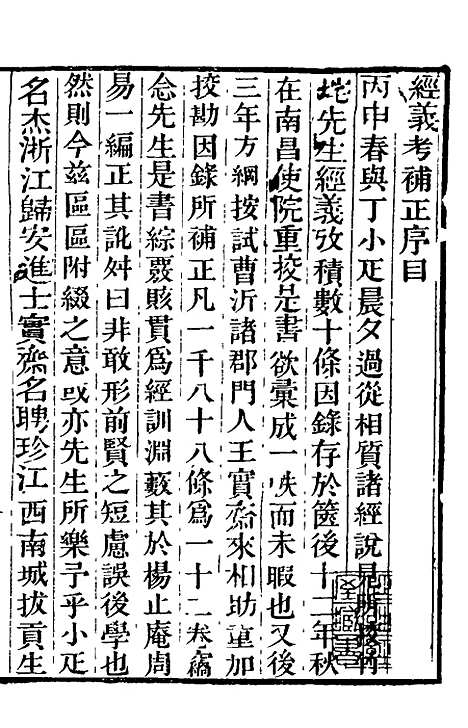 經義考補正序目
丙申春與丁小疋晨夕過從相質諸經說是時挍竹
垞先生經義攷積數十條因錄存於篋後十二年秋
在南昌使院重挍是書欲彙成一帙而未暇也又後
三年方綱按試曹沂諸郡門人王實齋來相助重加
挍勘因錄所補正凡一千八十八條爲一十二卷竊
念先生是書綜覈賅貫爲經訓淵藪其於楊止庵周
易一編正其訛舛曰非敢形前賢之短慮誤後學也
然則今茲區區附綴之意或亦先生所樂予乎小疋
名杰浙江歸安進士實齋名聘珍江西南城拔貢生